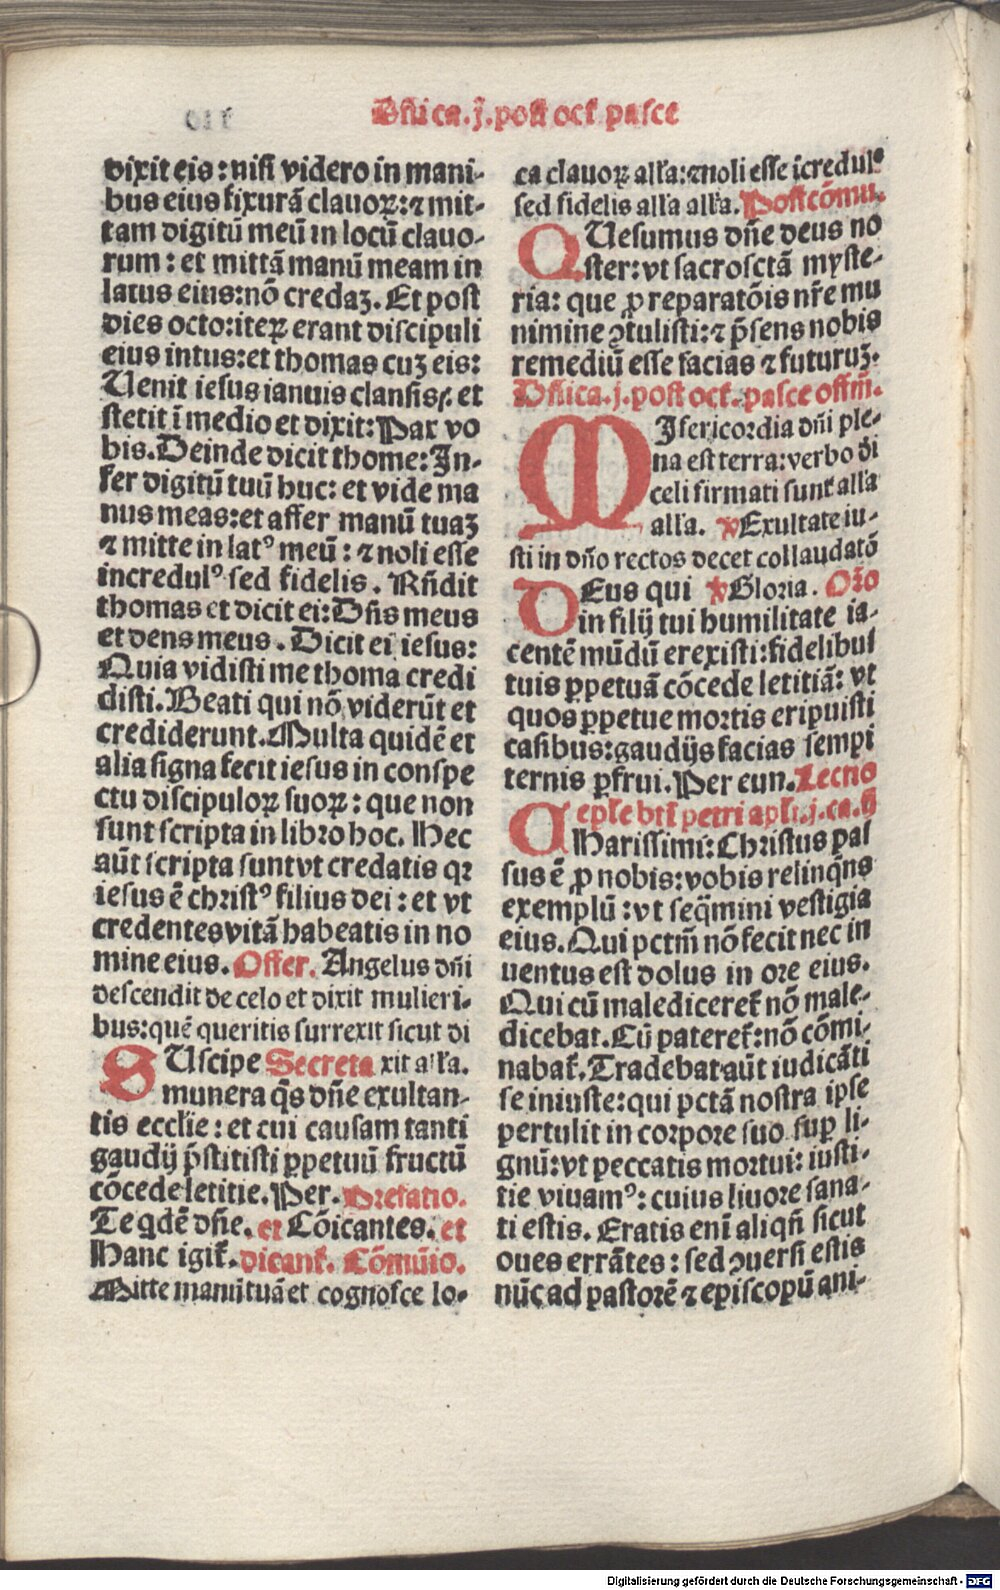 Dñica.j.post oct̃ pasce
dixit eis: nisi videro in mani-
bus eius fixurā clauoꝝ: ⁊ mit-
tam digitū meū in locū clauo-
rum: et mittā manū meam in
latus eius: nō credaꝫ. Et post
dies octo: iteꝝ erant discipuli
eius intus: et thomas cuꝫ eis:
Uenit iesus ianuis clansis: et
stetit ī medio et dixit: Pax vo
bis. Deinde dicit thome: In-
fer digitū tuū huc: et vide ma
nus meas: et affer manū tuaꝫ
⁊ mitte in latꝰ meū: ⁊ noli esse
incredulꝰ sed fidelis. Rñdit
thomas et dicit ei: Dñs meus
et dens meus. Dicit ei iesus:
Quia vidisti me thoma credi
disti. Beati qui nō viderūt et
crediderunt. Multa quidē et
alia signa fecit iesus in conspe
ctu discipuloꝝ suoꝝ: que non
sunt scripta in libro hoc. Hec
aūt scripta sunt vt credatis qꝛ
iesus ē christꝰ filius dei: et vt
credentes vitā habeatis in no
mine eius. Offer. Angelus dñi
descendit de celo et dixit mulieri-
bus: quē queritis surrexit sicut di
SUscipe Secreta xit alľa.
munera q̄s dñe exultan-
tis ecclie: et cui causam tanti
gaudij p̄stitisti ꝑpetuū fructū
cōcede letitie. Per. Prefatio.
Te qdē dñe. et Cōicantes. et
Hanc igit̃. dicant̃. Cōmūio.
Mitte manū tuā et cognosce lo-
ca clauoꝝ alľa: ⁊ noli esse īcredulꝰ
sed fidelis alľa alľa. Postcōmu.
QUesumus dñe deus no
ster: vt sacrosctā myste-
ria: que ꝓ reparatōis nr̄e mu
nimine ꝯtulisti: ⁊ p̄sens nobis
remediū esse facias ⁊ futuruꝫ.
Dñica.j.post oct̃. pasce offm̄.
MIsericordia dñi ple-
na est terra: verbo dī
celi firmati sunt alľa
alľa. ℣ Exultate iu-
sti in dño rectos decet collaudatō
DEus qui ℣ Gloria. Or̄o
in filij tui humilitate ia-
centē mūdū erexisti: fidelibus
tuis ꝑpetuā cōcede letitiā: vt
quos ꝑpetue mortis eripuisti
casibus: gaudijs facias sempi
ternis ꝑfrui. Per eun. Lectio
eple bti petri apli.j.ca.ij
CHarissimi: Christus pas
sus ē ꝓ nobis: vobis relinqns
exemplū: vt seqmini vestigia
eius. Qui pctm̄ nō fecit nec in
uentus est dolus in ore eius.
Qui cū malediceret̃ nō male-
dicebat. Cū pateret̃: nō cōmi-
nabat̃. Tradebat aūt iudicāti
se iniuste: qui pctā nostra ipse
pertulit in corpore suo suꝑ li-
gnū: vt peccatis mortui: iusti-
tie viuamꝰ: cuius liuore sana-
ti estis. Eratis enī aliqn̄ sicut
oues errātes: sed ꝯuersi estis
nūc ad pastorē ⁊ episcopū ani-
Digitalisierung gefördert durch die Deutsche Forschungsgemeinschaft - DFG